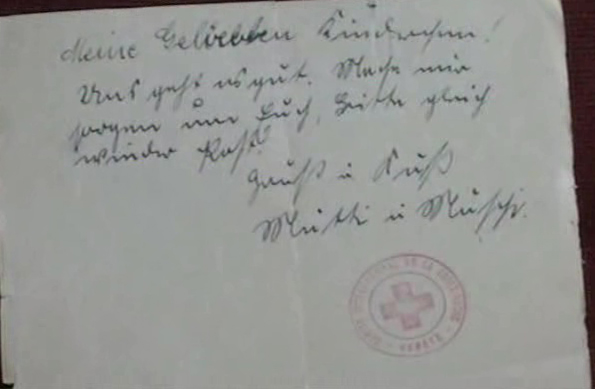 Meine Geliebten Kinderchen!
Uns geht es gut. Mache mir
sorgen um Euch, bitte gleich
wieder Post!
Gruß u Kuß
Mutti u Muschi.
COMITÉ INTERNATIONAL DE LA CROIX-ROUGE - GENÈVE -